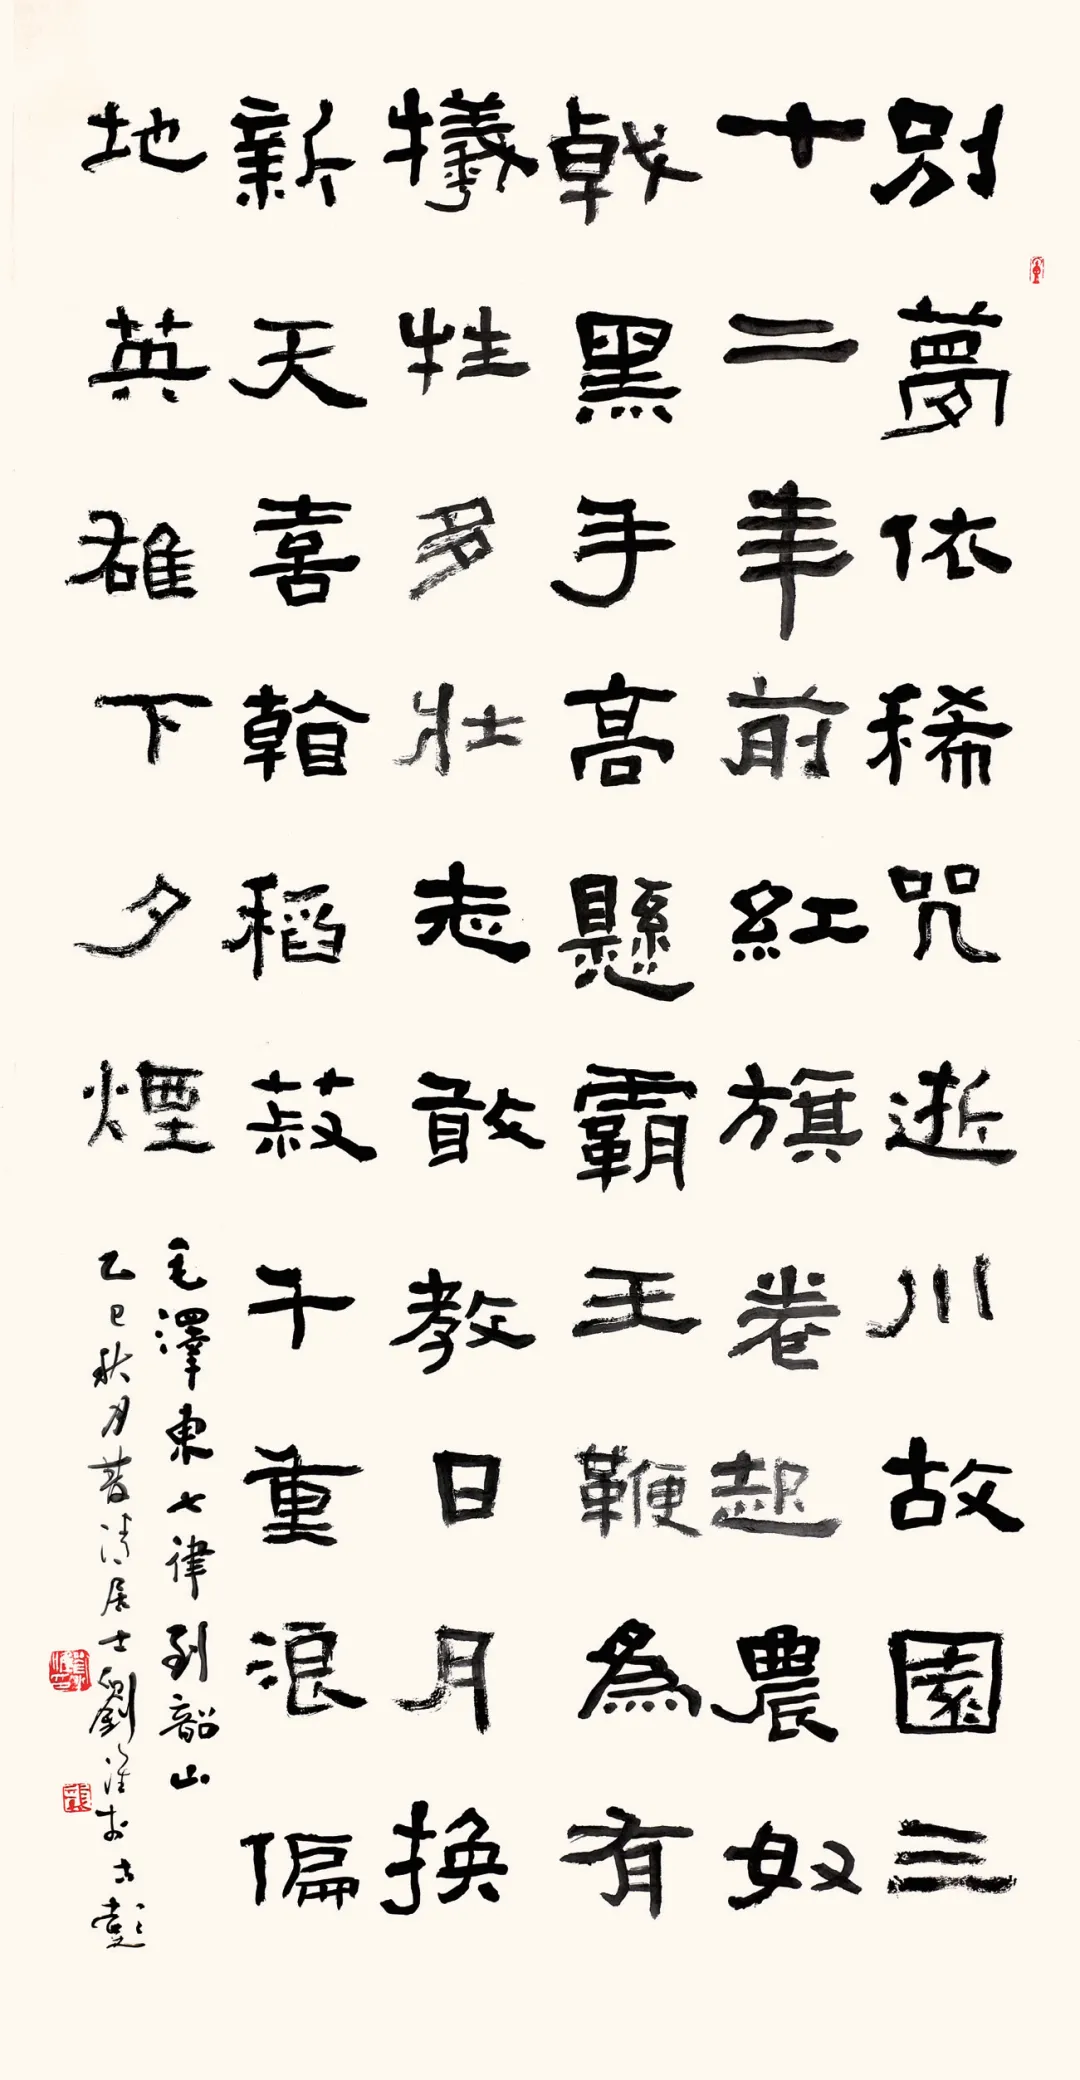 别夢依稀咒逝川故園三
十二年前紅旗卷起農奴
戟黑手高懸霸王鞭為有
犧牲多壯志敢教日月換
新天喜看稻菽千重浪偏
地英雄下夕煙
毛澤東七律到韶山
乙巳秋月清居士劉淮於古彭